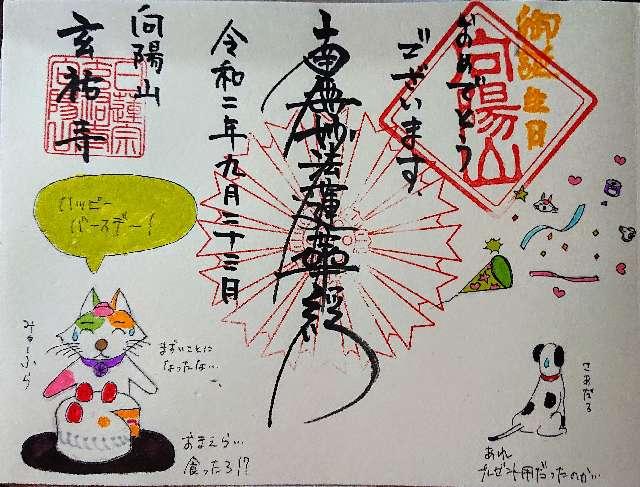 御誕生日
おめでとう
ございます
向陽山
南無妙法蓮華経
令和二年九月二十三日
向陽山
玄祐寺
日蓮宗
ハッピー
バースデー!
まずいことに
なったな…
おまえらい
食ったろ!?
あれ
プレゼント用だったのかい